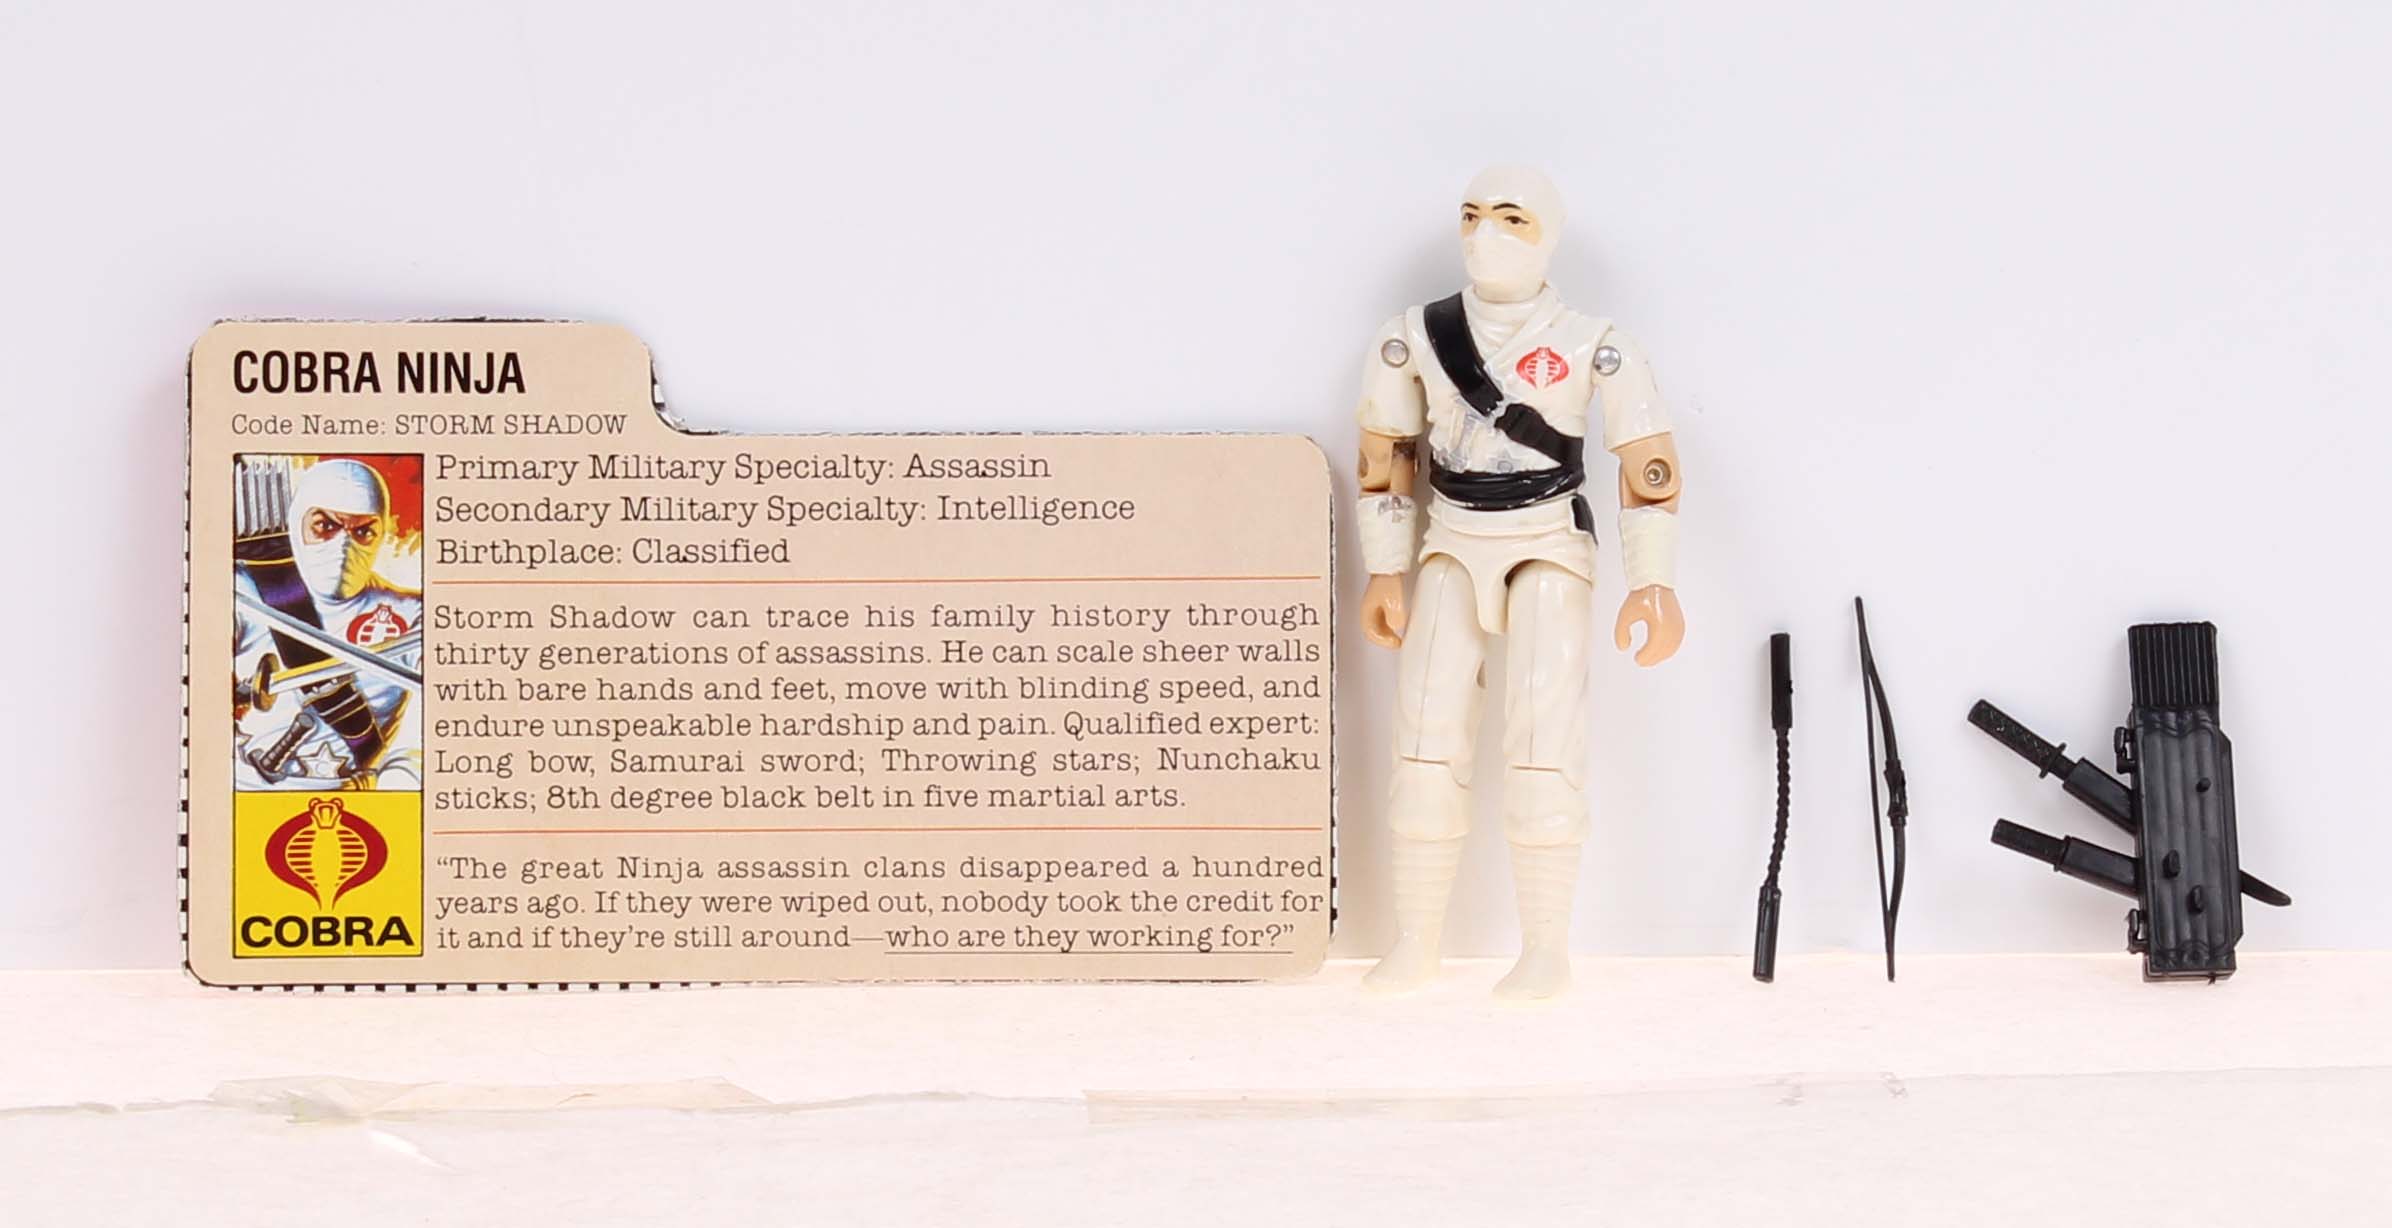 COBRA NINJA
Code Name: STORM SHADOW
Primary Military Specialty: Assassin
Secondary Military Specialty: Intelligence
Birthplace: Classified
Storm Shadow can trace his family history through
thirty generations of assassins. He can scale sheer walls
with bare hands and feet, move with blinding speed, and
endure unspeakable hardship and pain. Qualified expert:
Long bow, Samurai sword; Throwing stars; Nunchaku
sticks; 8th degree black belt in five martial arts.
“The great Ninja assassin clans disappeared a hundred
years ago. If they were wiped out, nobody took the credit for
it and if they’re still around—who are they working for?”
COBRA